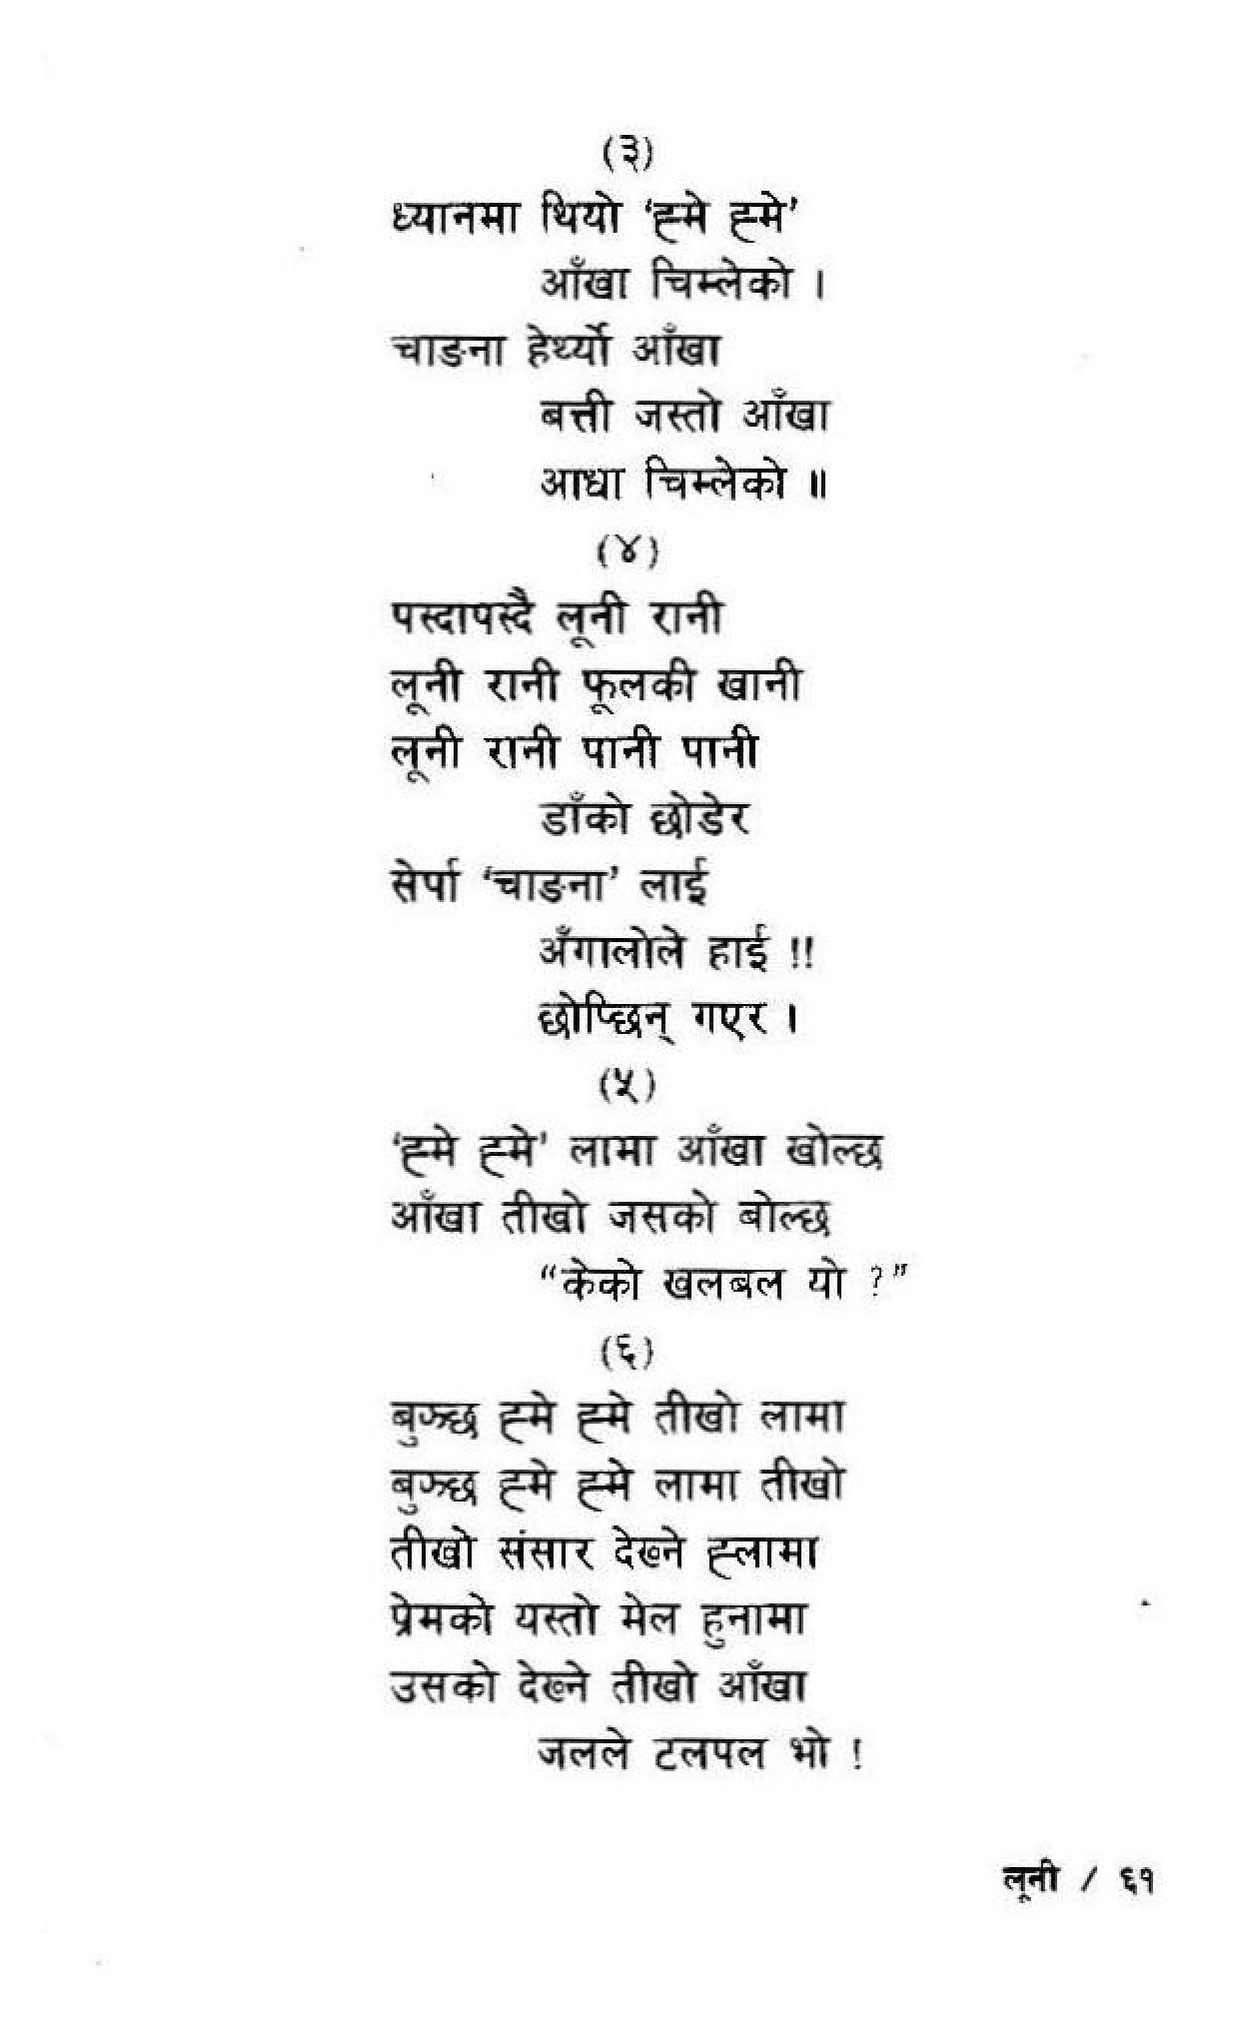 (३)
ध्यानमा थियो ‘ह्मे ह्मे’
आँखा चिम्लेको ।
चाङना हेर्थ्यो आँखा
बत्ती जस्तो आँखा
आधा चिम्लेको ॥
(४)
पस्दापस्दै लूनी रानी
लूनी रानी फूलकी खानी
लूनी रानी पानी पानी
डाँको छोडेर
सेर्पा ‘चाङना’ लाई
अँगालोले हाई !!
छोप्छिन् गएर ।
(५)
‘ह्मे ह्मे’ लामा आँखा खोल्छ
आँखा तीखो जसको बोल्छ
“केको खलबल यो ?”
(६)
बुझ्छ ह्मे ह्मे तीखो लामा
बुझ्छ ह्मे ह्मे लामा तीखो
तीखो संसार देख्ने ह्लामा
प्रेमको यस्तो मेल हुनामा
उसको देख्ने तीखो आँखा
जलले टलपल भो !
लूनी / ६१